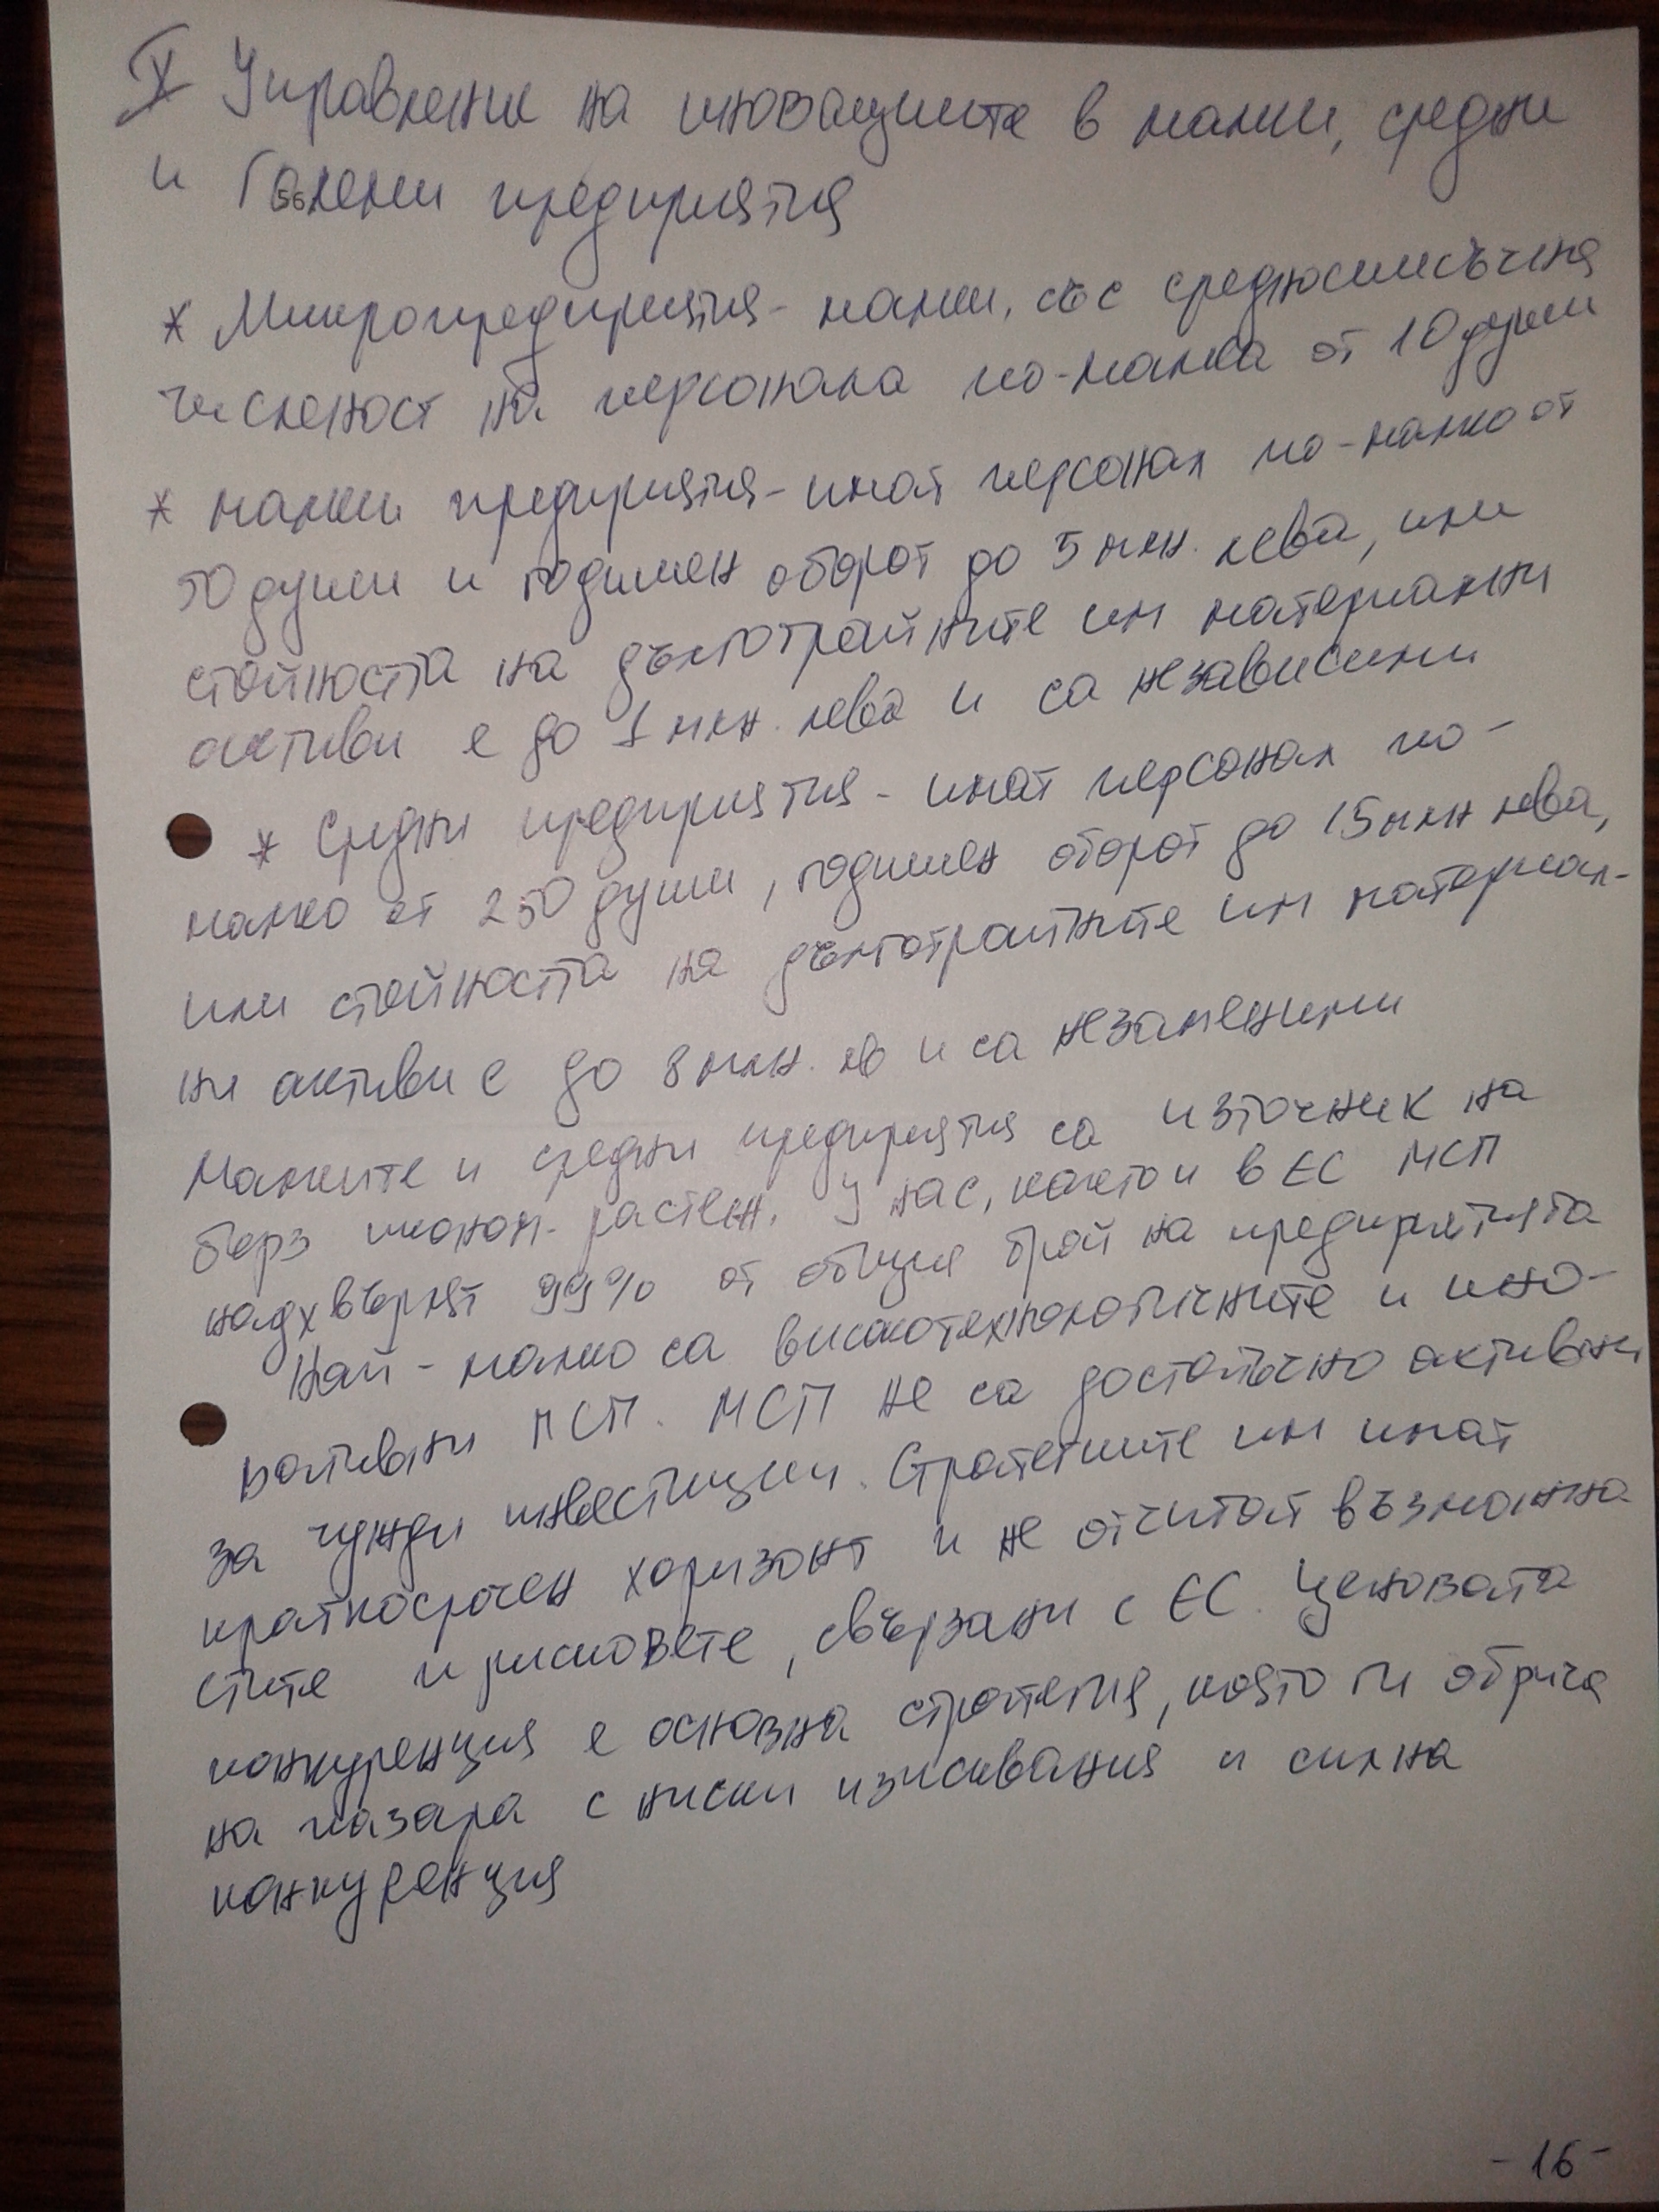 X Управление на иновациите в малки, средни
и Големи предприятия
* Микропредприятия - малки, със средносписъчна
численост на персонала по-малка от 10 души
* малки предприятия - имат персонал по-малко от
50 души и годишен оборот до 5 млн. лева, или
стойността на дълготрайните им материални
активи е до 1 млн. лева и са независими
* Средни предприятия - имат персонал по-
малко от 250 души, годишен оборот до 15 млн лева,
или стойността на дълготрайните им материал-
ни активи е до 8 млн. лв и са незаменими
Малките и средни предприятия са източник на
бърз иконом. растеж. У нас, както и в ЕС МСП
надхвърлят 99% от общия брой на предприятията
Най-малко са високотехнологичните и ино-
вативни МСП. МСП не са достатъчно активни
за чужди инвестиции. Стратегиите им имат
краткосрочен хоризонт и не отчитат възможно-
стите и рисковете, свързани с ЕС. Ценовата
конкуренция е основна стратегия, която ги обрича
на пазара с ниски изисквания и силна
конкуренция
- 16 -